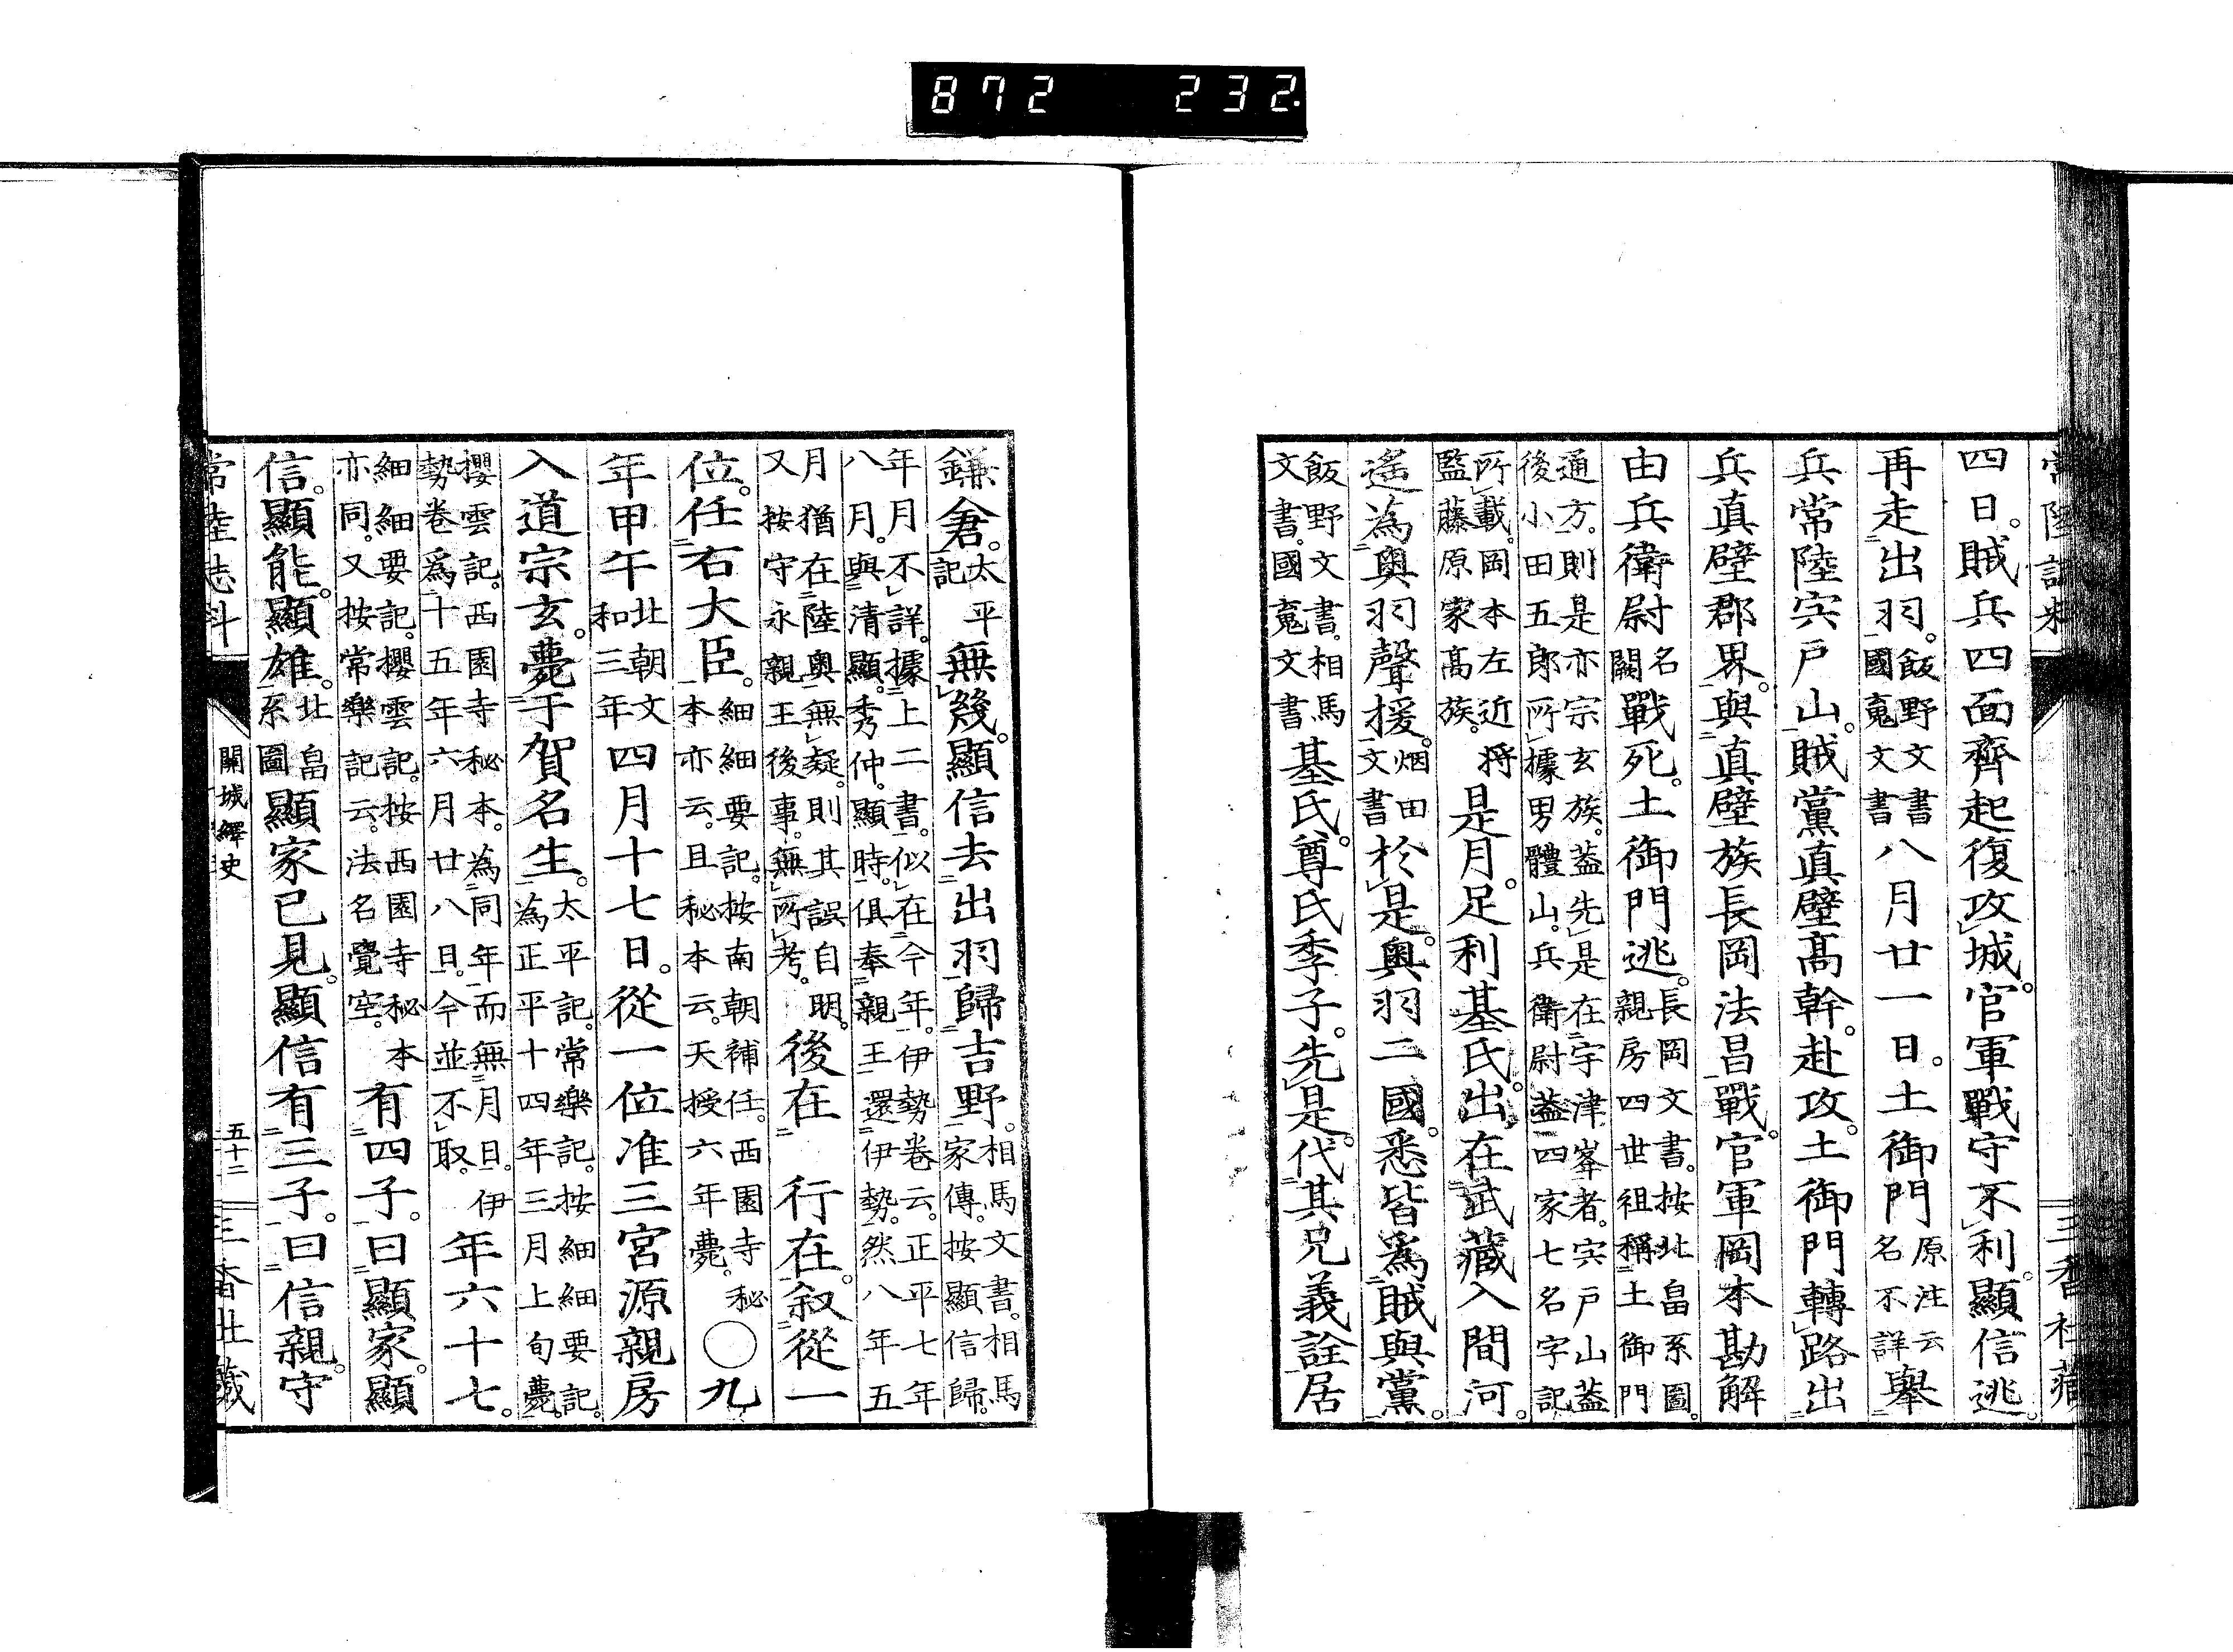 872 232.
四日。賊兵四面齊起復攻城。官軍戰守不利。顯信逃。
再走出羽。飯野文書國䰟文書八月廿一日。土御門原注云名不詳擧
兵常陸宍戸山。賊黨真壁髙幹。赴攻。土御門轉路出
兵真壁郡界。與真壁族長岡法昌戰。官軍岡本勘解
由兵衛尉名闕戰死。土御門逃。長岡文書。按北畠系圖。親房四世祖稱土御門
通方。則是亦宗玄族。蓋先是在宇津峯者。宍戸山蓋
後小田五郎所據男體山。兵衛尉蓋四家七名字記
所載。岡本左近將監藤原家髙族。是月。足利基氏。出在武藏入間河。
遙爲奥羽聲援。烟田文書於是。奥羽二國。悉皆爲賊與黨。
飯野文書。相馬文書。國䰟文書基氏。尊氏季子。先是。代其兄義詮居
鎌倉。太平記無幾。顯信去出羽歸吉野。相馬文書。相馬家傳。按顯信歸。
年月不詳。據上二書。似在今年。伊勢卷云。正平七年
八月。與清顯。秀仲。顯時。俱奉親王還伊勢。然八年五
月猶在陸奥無疑。則其誤自明。又按守永親王後事。無所考。後在 行在。叙從一
位。任右大臣。細細要記。按南朝補任。西園寺秘本亦云。且秘本云。天授六年薨。〇九
年甲午北朝文和三年四月十七日。從一位准三宮源親房
入道宗玄。薨于賀名生。太平記。常樂記。按細細要記。爲正平十四年三月上旬薨。
櫻雲記。西園寺秘本。為同年而無月日。伊勢卷爲十五年六月廿八日。今並不取。年六十七。
細細要記。櫻雲記。按西園寺秘本亦同。又按常樂記云。法名覺空。有四子。曰顯家。顯
信。顯能。顯雄。北畠系圖顯家已見。顯信有三子。曰信親。守
常陸志料 關城繹史 五十二